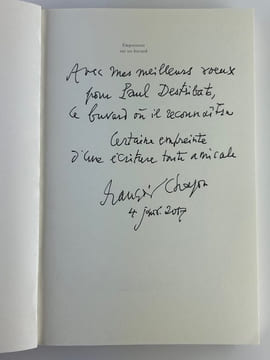 Empreintes
sur un buvard
Avec mes meilleurs voeux
pour Paul Destribats,
ce buvard où il reconnaîtra
certaine empreinte
d'une écriture toute amicale
François Chapon
4 janv. 2017